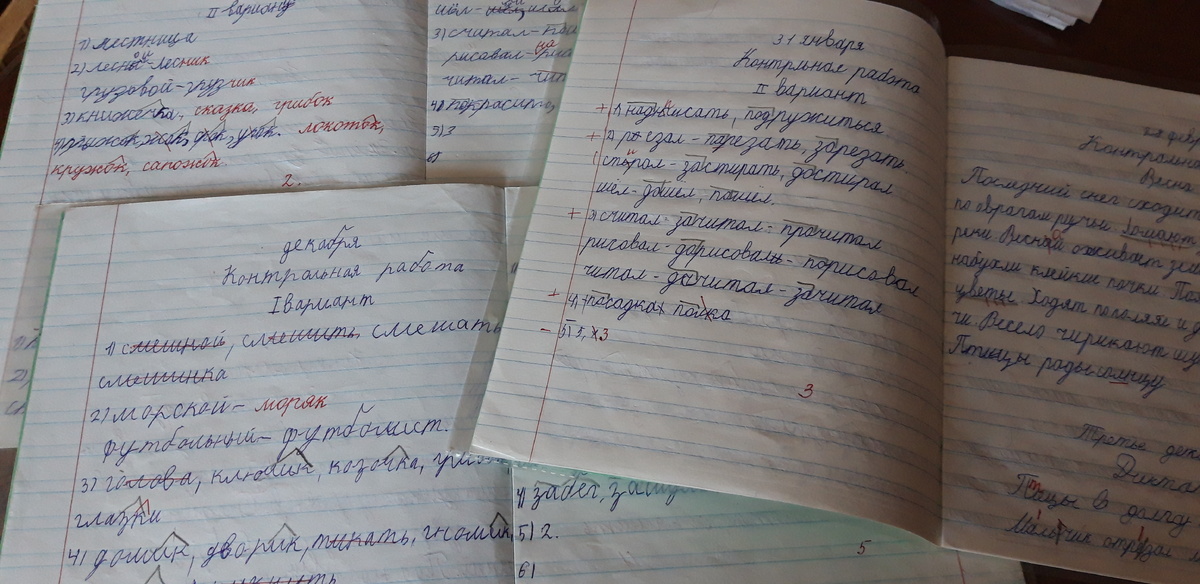 II вариант
1) местница
2) лесной-лесник
грузовой-грузчик
3) книжечка, сказка, грибок
локоток,
кружок, сапожок
2.
3) считал-
рисовал-
читал-
4) покрасить,
5) 3
6)
31 января
Контрльная работа
II вариант
+ 1) надписать, подружиться
+ 2) резал - порезать, зарезать
стирал - застирать, достирал
шёл - дошел, пошел.
+ 3) считал - зачитал - прочитал
рисовал - дорисовал - порисовал
читал - дочитал - зачитал
+ 4) посадка
- 5) 5, 3
3
декабря
Контрольная работа
I вариант
1) смешной, смешить, смешать
смешинка
2) морской - моряк
футбольный - футболист.
3) голова, ключик, козочка,
глазки
4) домик, дворик, тикать, гномик,
4) забег,
5) 2.
6)
5
Контрольна
Весна
Последний снег сходит
по оврагам ручьи. Ломают
реки. Весной оживает
набухли клейкие почки.
цветы. Ходят по поляне
чи. Весело чирикают
Птицы рады солнцу
Третье дек
Дикта
Птицы в
Мальчик